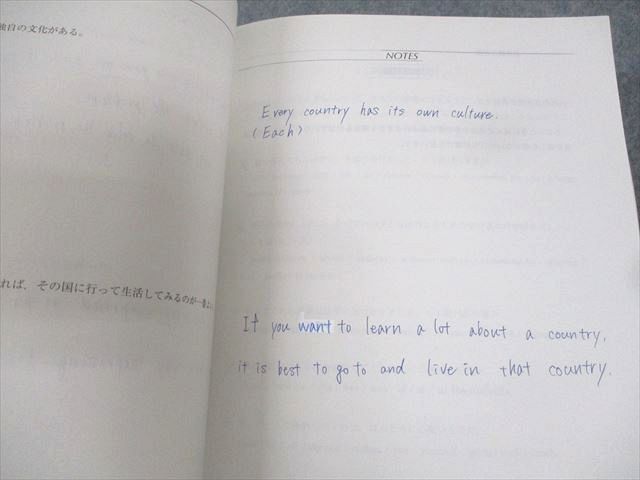 独自の文化がある。
れば、その国に行って生活してみるのが一番よい
NOTES
Every country has its own culture.
(Each)
If you want to learn a lot about a country,
it is best to go to and live in that country.